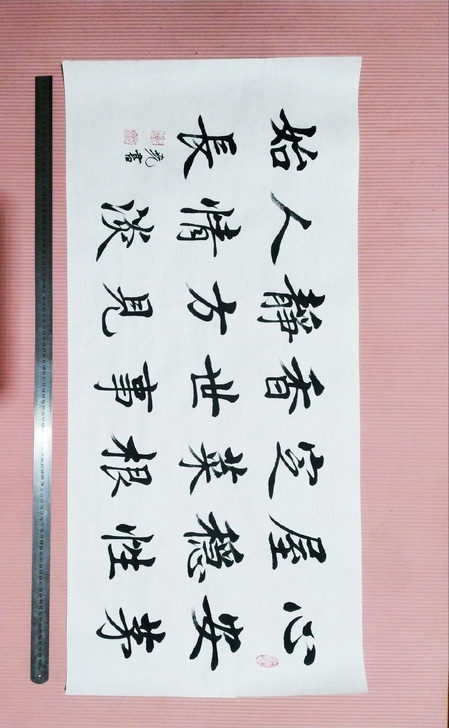 心安茅
屋穩性
定菜根
香世事
靜方見
人情淡
始長
書